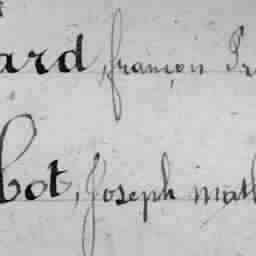 ard, françois Pr
bot, Joseph math